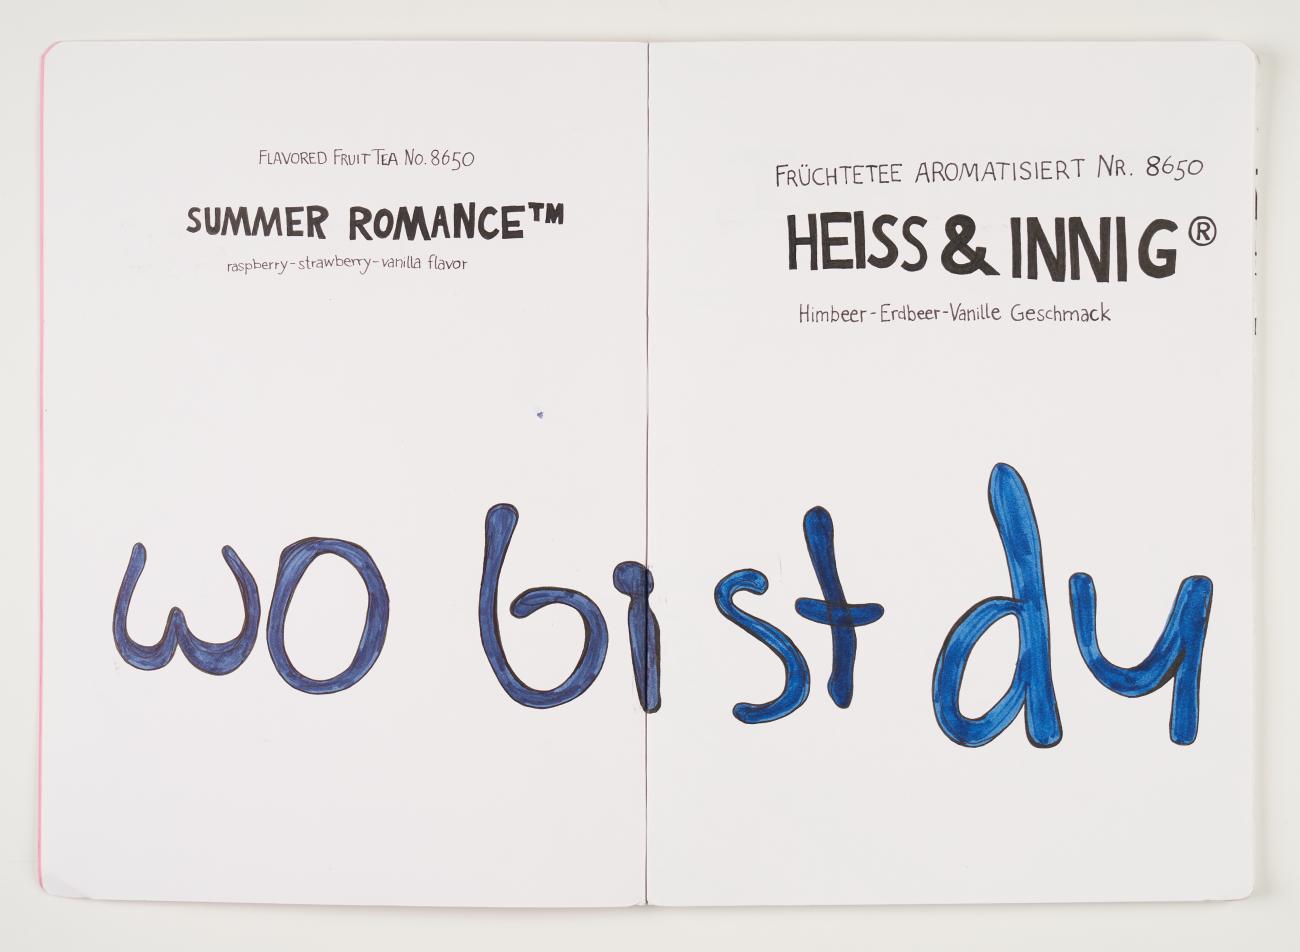 FLAVORED FRUIT TEA NO. 8650
SUMMER ROMANCE™
raspberry-strawberry-vanilla flavor
FRÜCHTETEE AROMATISIERT NR. 8650
HEISS & INNIG®
Himbeer-Erdbeer-Vanille Geschmack
wo bist du